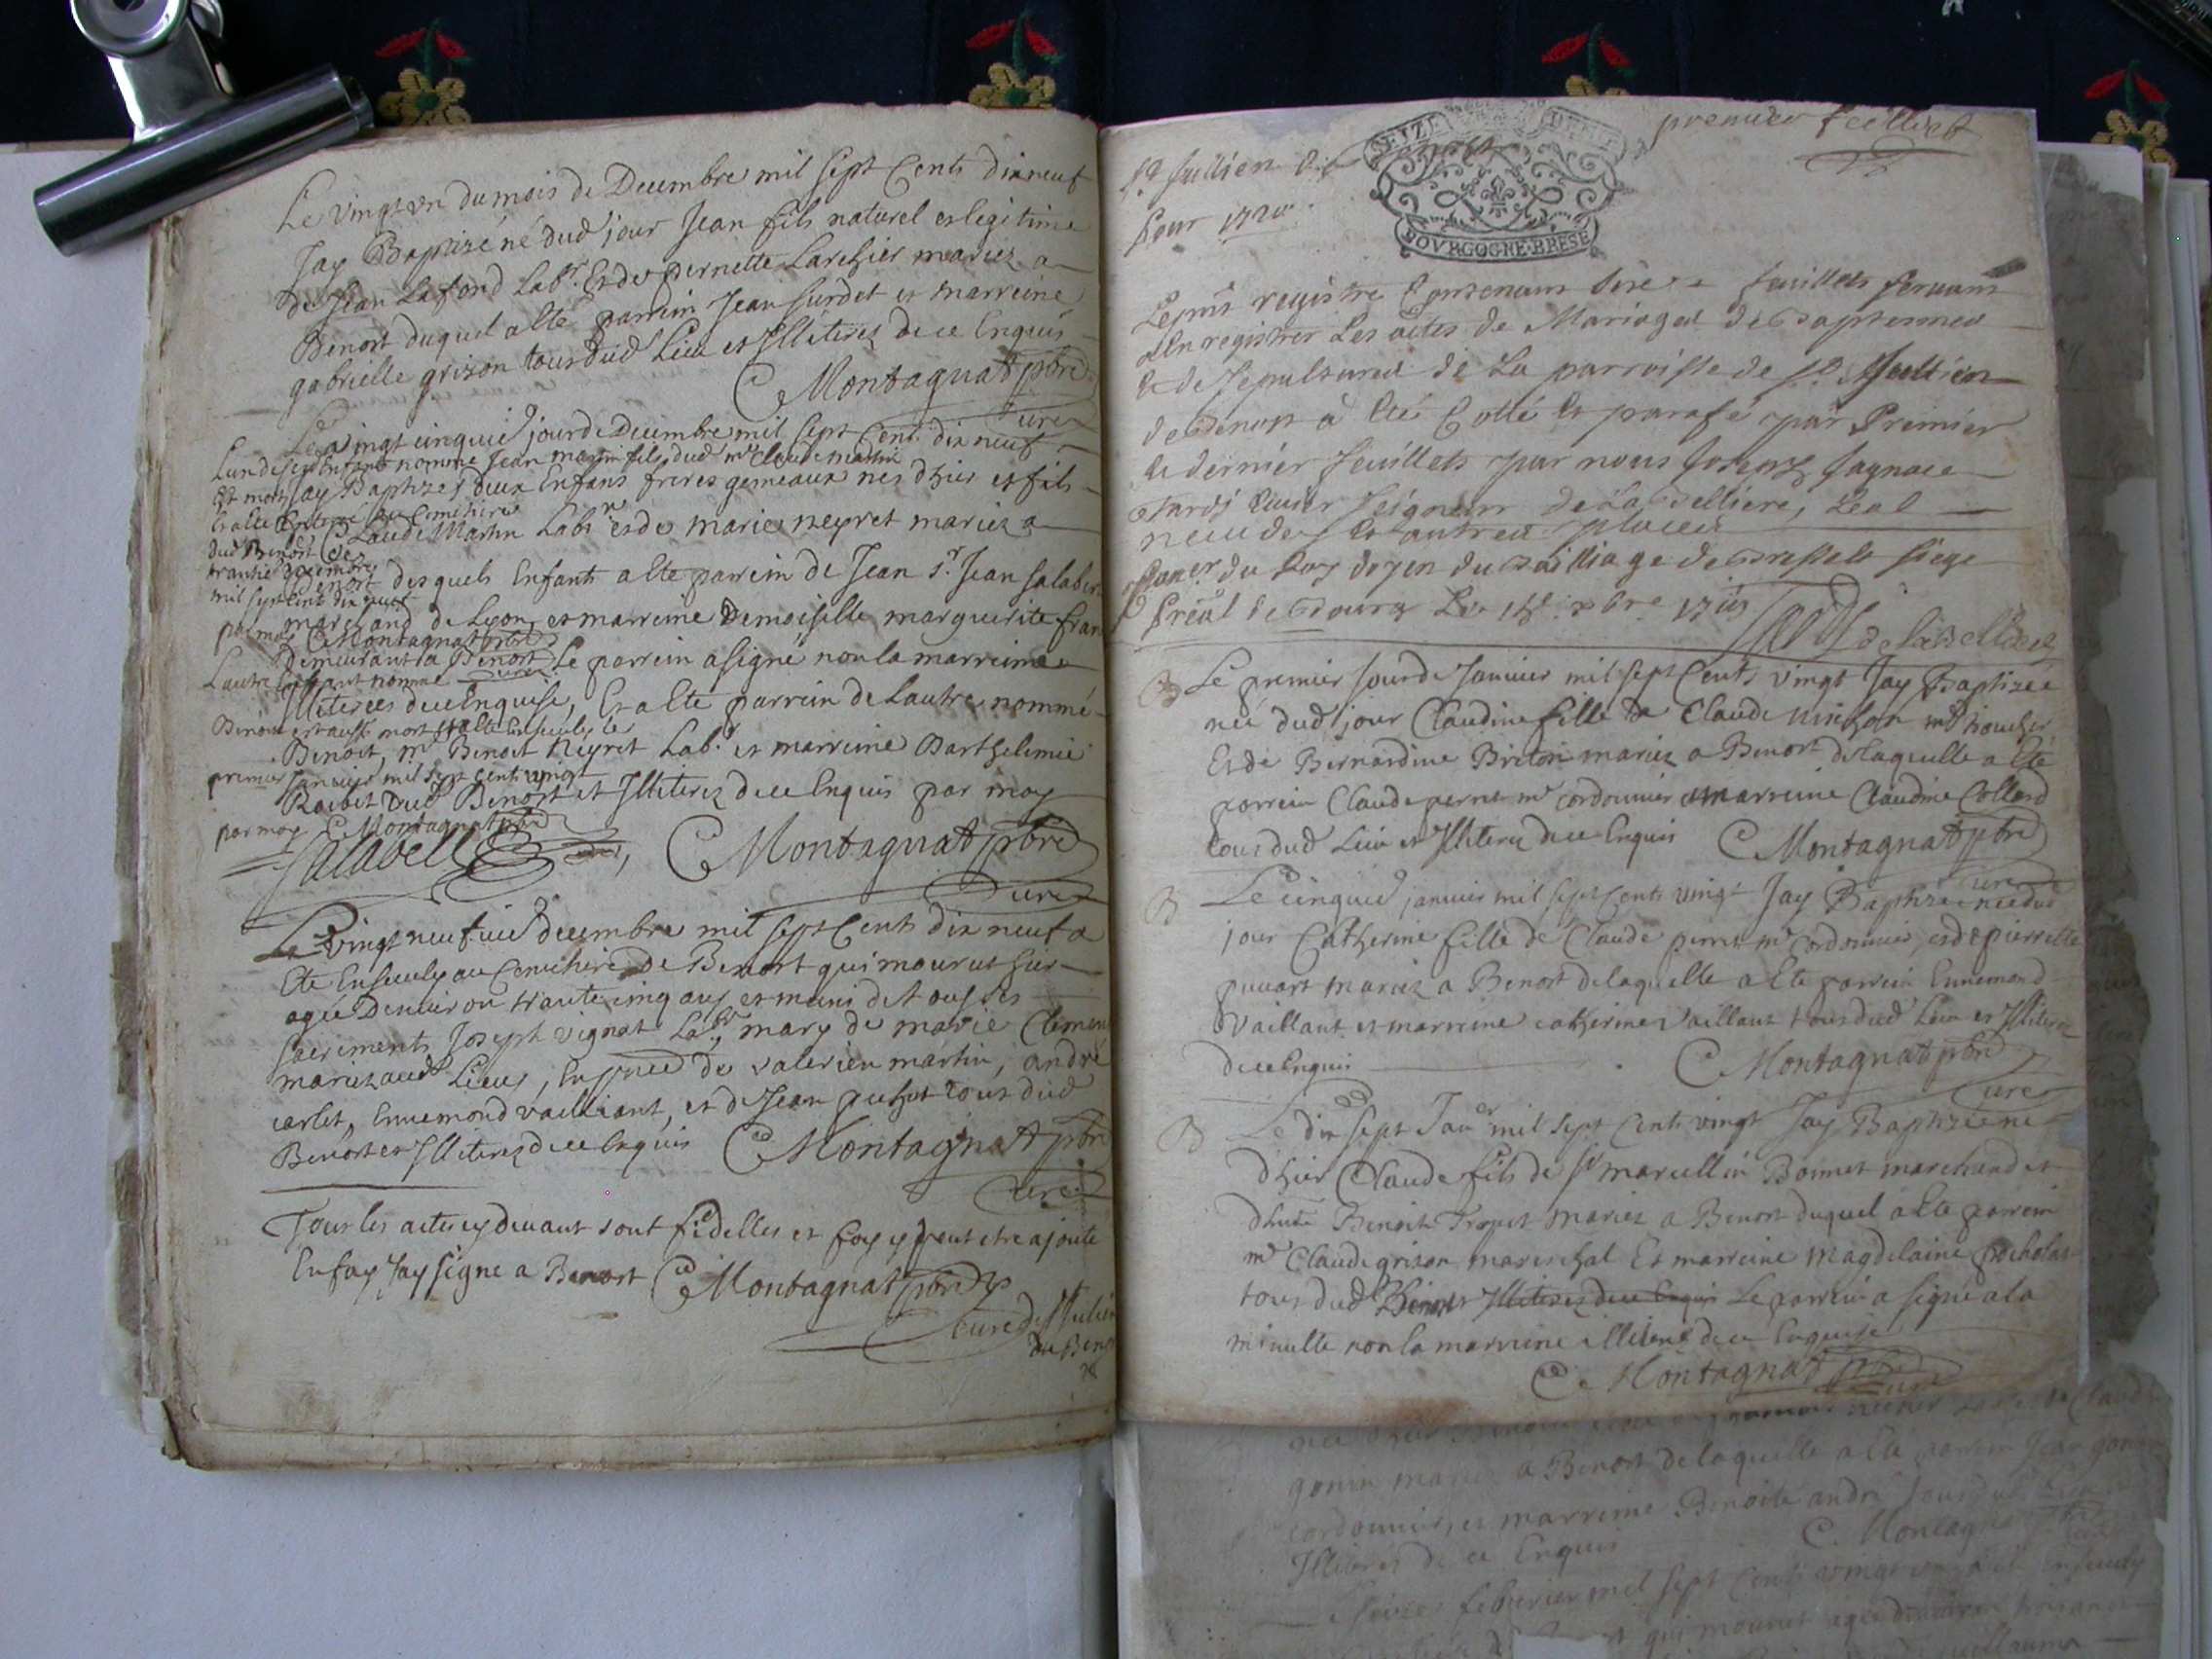 Le vingt un du mois de Decembre mil sept Cents dix neuf
Jay Baptizé né dud jour Jean fils naturel et legitime
de Jean Lafond Labr. Et de pernette Larchier mariez a
Benort duquel a Eté parrein Jean Surdet et marreine
gabrielle grizon tous dud Lieu et Illiterez de ce Enquis
C Montagnat pbre
Curé
Le vingt cinquie jour de Decembre mil sept Cent dix neuf
Jay Baptizes deux Enfans freres gemeaux nes dhier et fils
Claude Martin Labr et de marie neyret mariez a
Benort desquels Enfants a Ete parrein de Jean Sr. Jean Salabert
marchand de Lyon, et marreine Demoiselle marguerite fran
Demeurant a Benort Le parrein a signé non la marreine
Illiterées de ce Enquise, Et a Ete parrein de Lautre nommé
Benoit, mr Benoit Neyret Labr. et marreine Barthelemie
Rabet dud Benort et Illiterez de ce Enquis par moy
Lun desd Enfants nommé Jean martin fils dud mr Claude Martin
Est mort
Et a Ete Enterré au Cemetiere
dud Benort Le
trantie Decembre
mil sept Cent dix neuf
par moy C Montagnat pbre
Curé
Lautre Enfant nommé
Benoit est aussi mort et a Ete Ensevely le
premier janvier mil sept cent vingt
par moy C Montagnat pbre
Salabell C Montagnat pbre
Curé
Le vingt neufvie decembre mil sept Cents dix neuf a
Ete Ensevely au Cemetiere De Benort qui mourut hier
agé Denviron trante cinq ans et muni de tous ses
sacrements Joseph vignat Labr, mary de marie Clement
mariez aud Lieu, En pnce de valerien martin, andré
carlet, Ennemond vailliant, et de Jean puhot tous dud
Benort et Illiterez de ce Enquis C Montagnat pbre
Curé
Tous les actes cy devant sont fidelles et foy y peut etre ajoute
En foy Jay signe a Benort C Montagnat pbre
Curé de St Julien
de Beno
premier feuillet
St Jullien
Pour 1720
SEIZE
BOVRGOGNE·BRESE
Le pnt registre Contenant feuillets servant
a Enregistrer Les actes de Mariages de Baptemes
& de Sepultures de La parroisse de St. Jullien
de Benort à Eté Cotté Et parafé par Premier
& dernier feuillets par nous Joseph Jgnace
Seigneur de La Belliere, Leal
neudes Et autres places
du Roy doyen du Bailliage de Bresse et Siege
Preâl de Bourg Le 18. xbre 1719
de la Belliere
B Le premier jour de Janvier mil sept Cents vingt Jay Baptizée
née dud jour Claudine fille de Claude michon mr boucher
Et de Bernardine Breton mariez a Benort delaquelle a Ete
parrein Claude perret mr cordonnier et marreine Claudine Collard
tous dud Lieu et Illiterez de ce Enquis C Montagnat pbre
Curé
B Le cinquie janvier mil sept cents vingt Jay Baptizée née dud
jour Catherine fille de Claude perret mr cordonnier, et de pierrette
puvart mariez a Benort delaquelle a Ete parrein Ennemond
Vaillant et marreine catherine Vaillant tous dud Lieu et Illiterez
de ce Enquis C Montagnat pbre
Curé
B Le dix sept Janer mil sept Cents vingt Jay Baptizé né
dhier Claude fils de Sr marcellin Bonnet marchand et
dhte Benoite Tropet mariez a Benort duquel a Ete parrein
mr Claude grizon mareschal Et marreine magdelaine pocholat
tous dud Benort Illiterez de ce Enquis Le parrein a signé a la
minutte non la marreine illiteré de ce Enquise
C Montagnat pbre
Curé
gonin mariez a Benort delaquelle a Ete parrein Jean gonin
cordonnier, et marreine Benoite andré tous dud Lieu
Illiterés de ce Enquis C. Montagnat pbre
febvrier mil sept Cents vingt Ensevely
qui mourut agé denviron